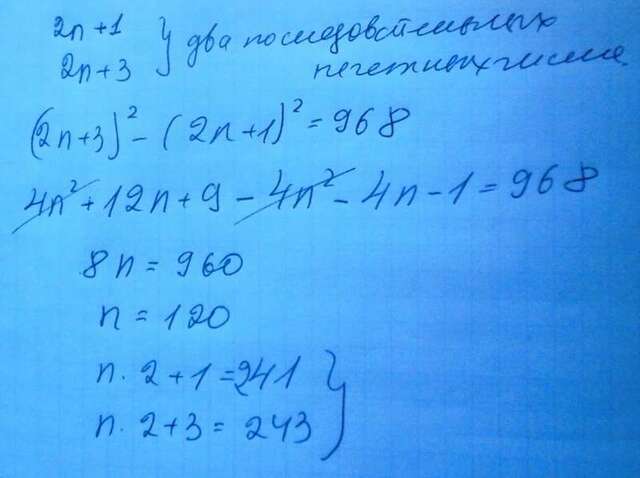 2n+1 } два последовательных
2n+3 нечетных числа.
(2n+3)² - (2n+1)² = 968
4n² + 12n + 9 - 4n² - 4n - 1 = 968
8n = 960
n = 120
n · 2 + 1 = 241
n · 2 + 3 = 243 }